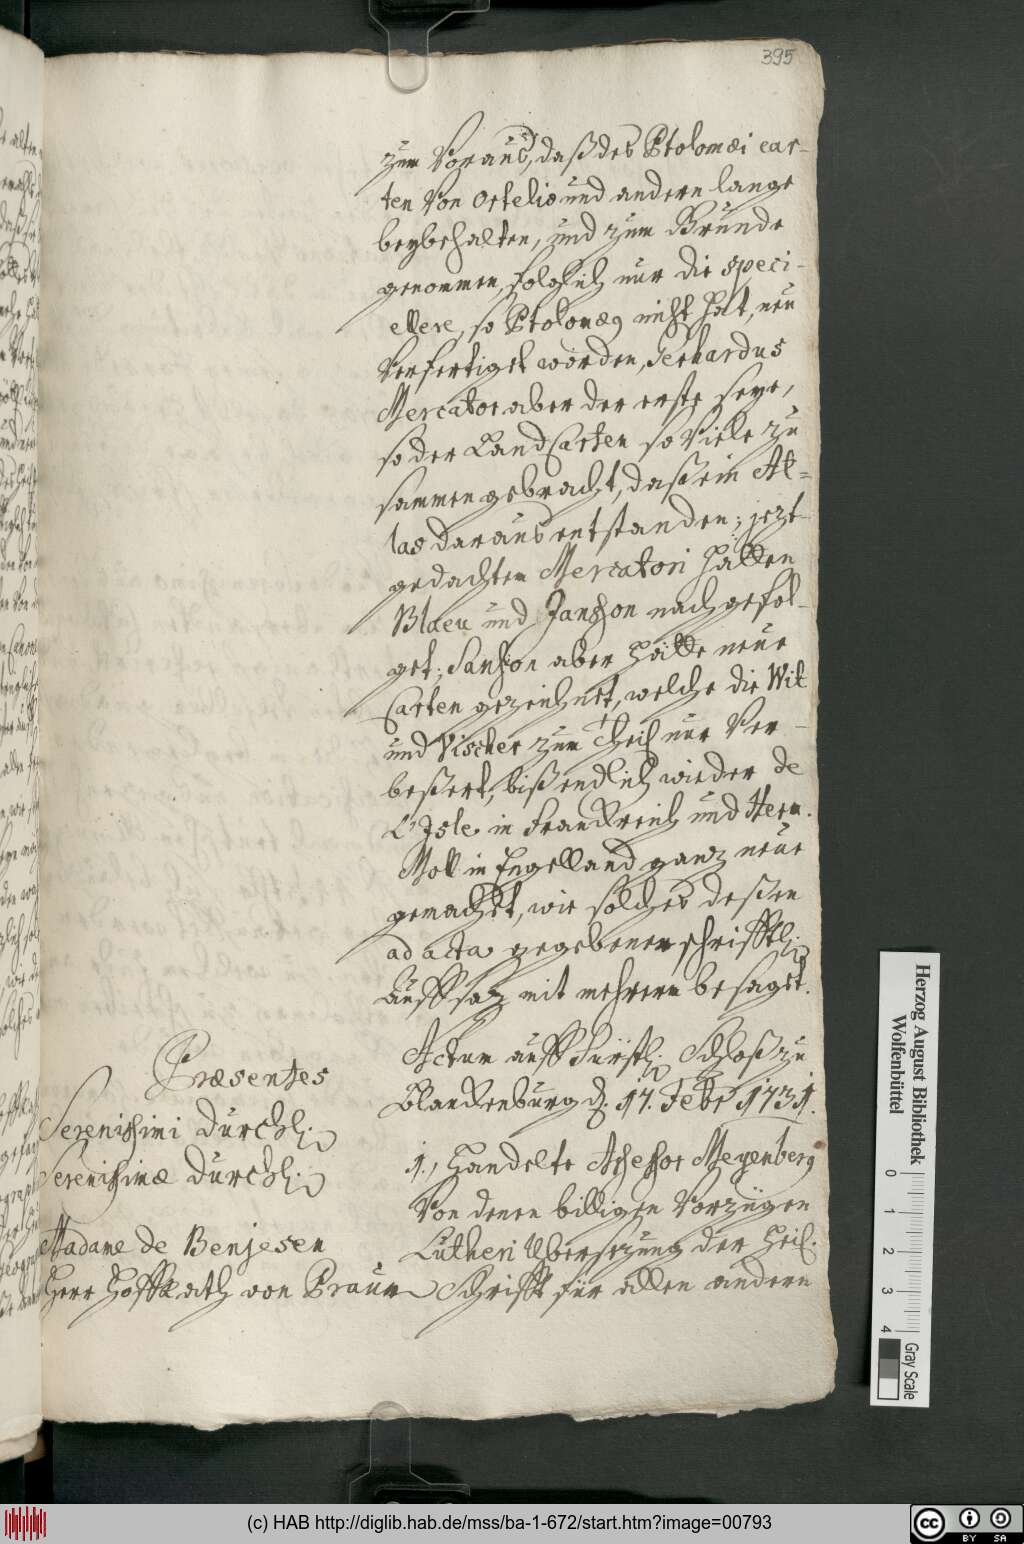 395
zum Voraus, daß des Ptolomæi car-
ten von Ortelio und andern lange
beybehalten, und zum Grunde
genommen, folglich nur die speci-
ellere, so Ptolomæus nicht hat, neu
verfertiget worden, Gerhardus
Mercator aber der erste seye,
so der Land Carten so viele zu
sammen gebracht, daß ein At-
las daraus entstanden; jezt
gedachten Mercatori hätten
Blaeu und Jansson nachgefol-
get; Sanson aber hätte neue
Carten gezeichnet, welche die Wit
und Vischer zum Theil nur ver-
beßert, biß endlich wieder de
L'Isle in Franckreich und Herm.
Moll in Engelland ganz neue
gemachet, wie solches deßen
ad acta gegebener schrifftl.
Auffsaz mit mehrern besaget.
Actum auff Fürstl. Schloß zu
Blanckenburg d. 17. Febr 1731.
Præsentes
Serenissimi Durchl.
Serenissimæ Durchl.
Madame de Benjesen
Herr Hoffrath von Praun
1., Handelte Assessor Meyenberg
von denen billigen Vorzügen
Lutheri Übersezung der Heil.
Schrifft für allen andern
Herzog August Bibliothek
Wolfenbüttel
0 1 2 3 4
Gray Scale
(c) HAB http://diglib.hab.de/mss/ba-1-672/start.htm?image=00793
cc BY SA